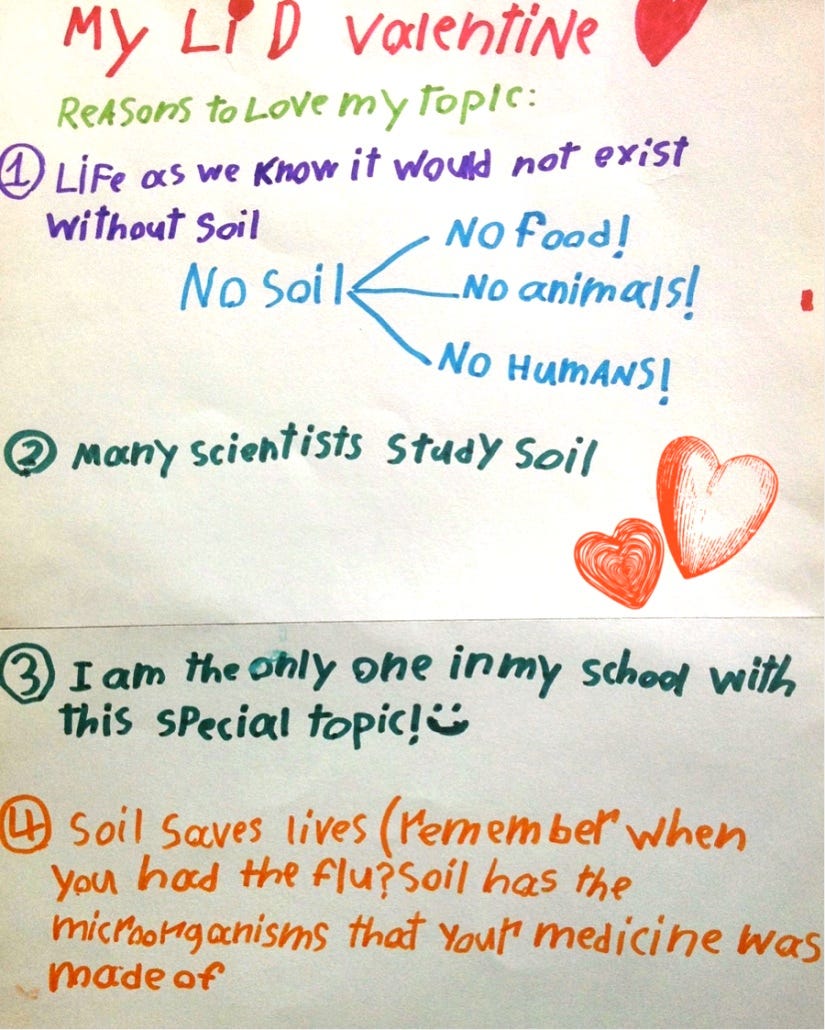 My LiD Valentine
Reasons to Love my Topic:
1 Life as we know it would not exist
without soil
No Soil
No food!
No animals!
No HumANS!
2 Many scientists study soil
3 I am the only one in my school with
this special topic!
4 Soil saves lives (remember when
you had the flu? Soil has the
microorganisms that your medicine was
made of